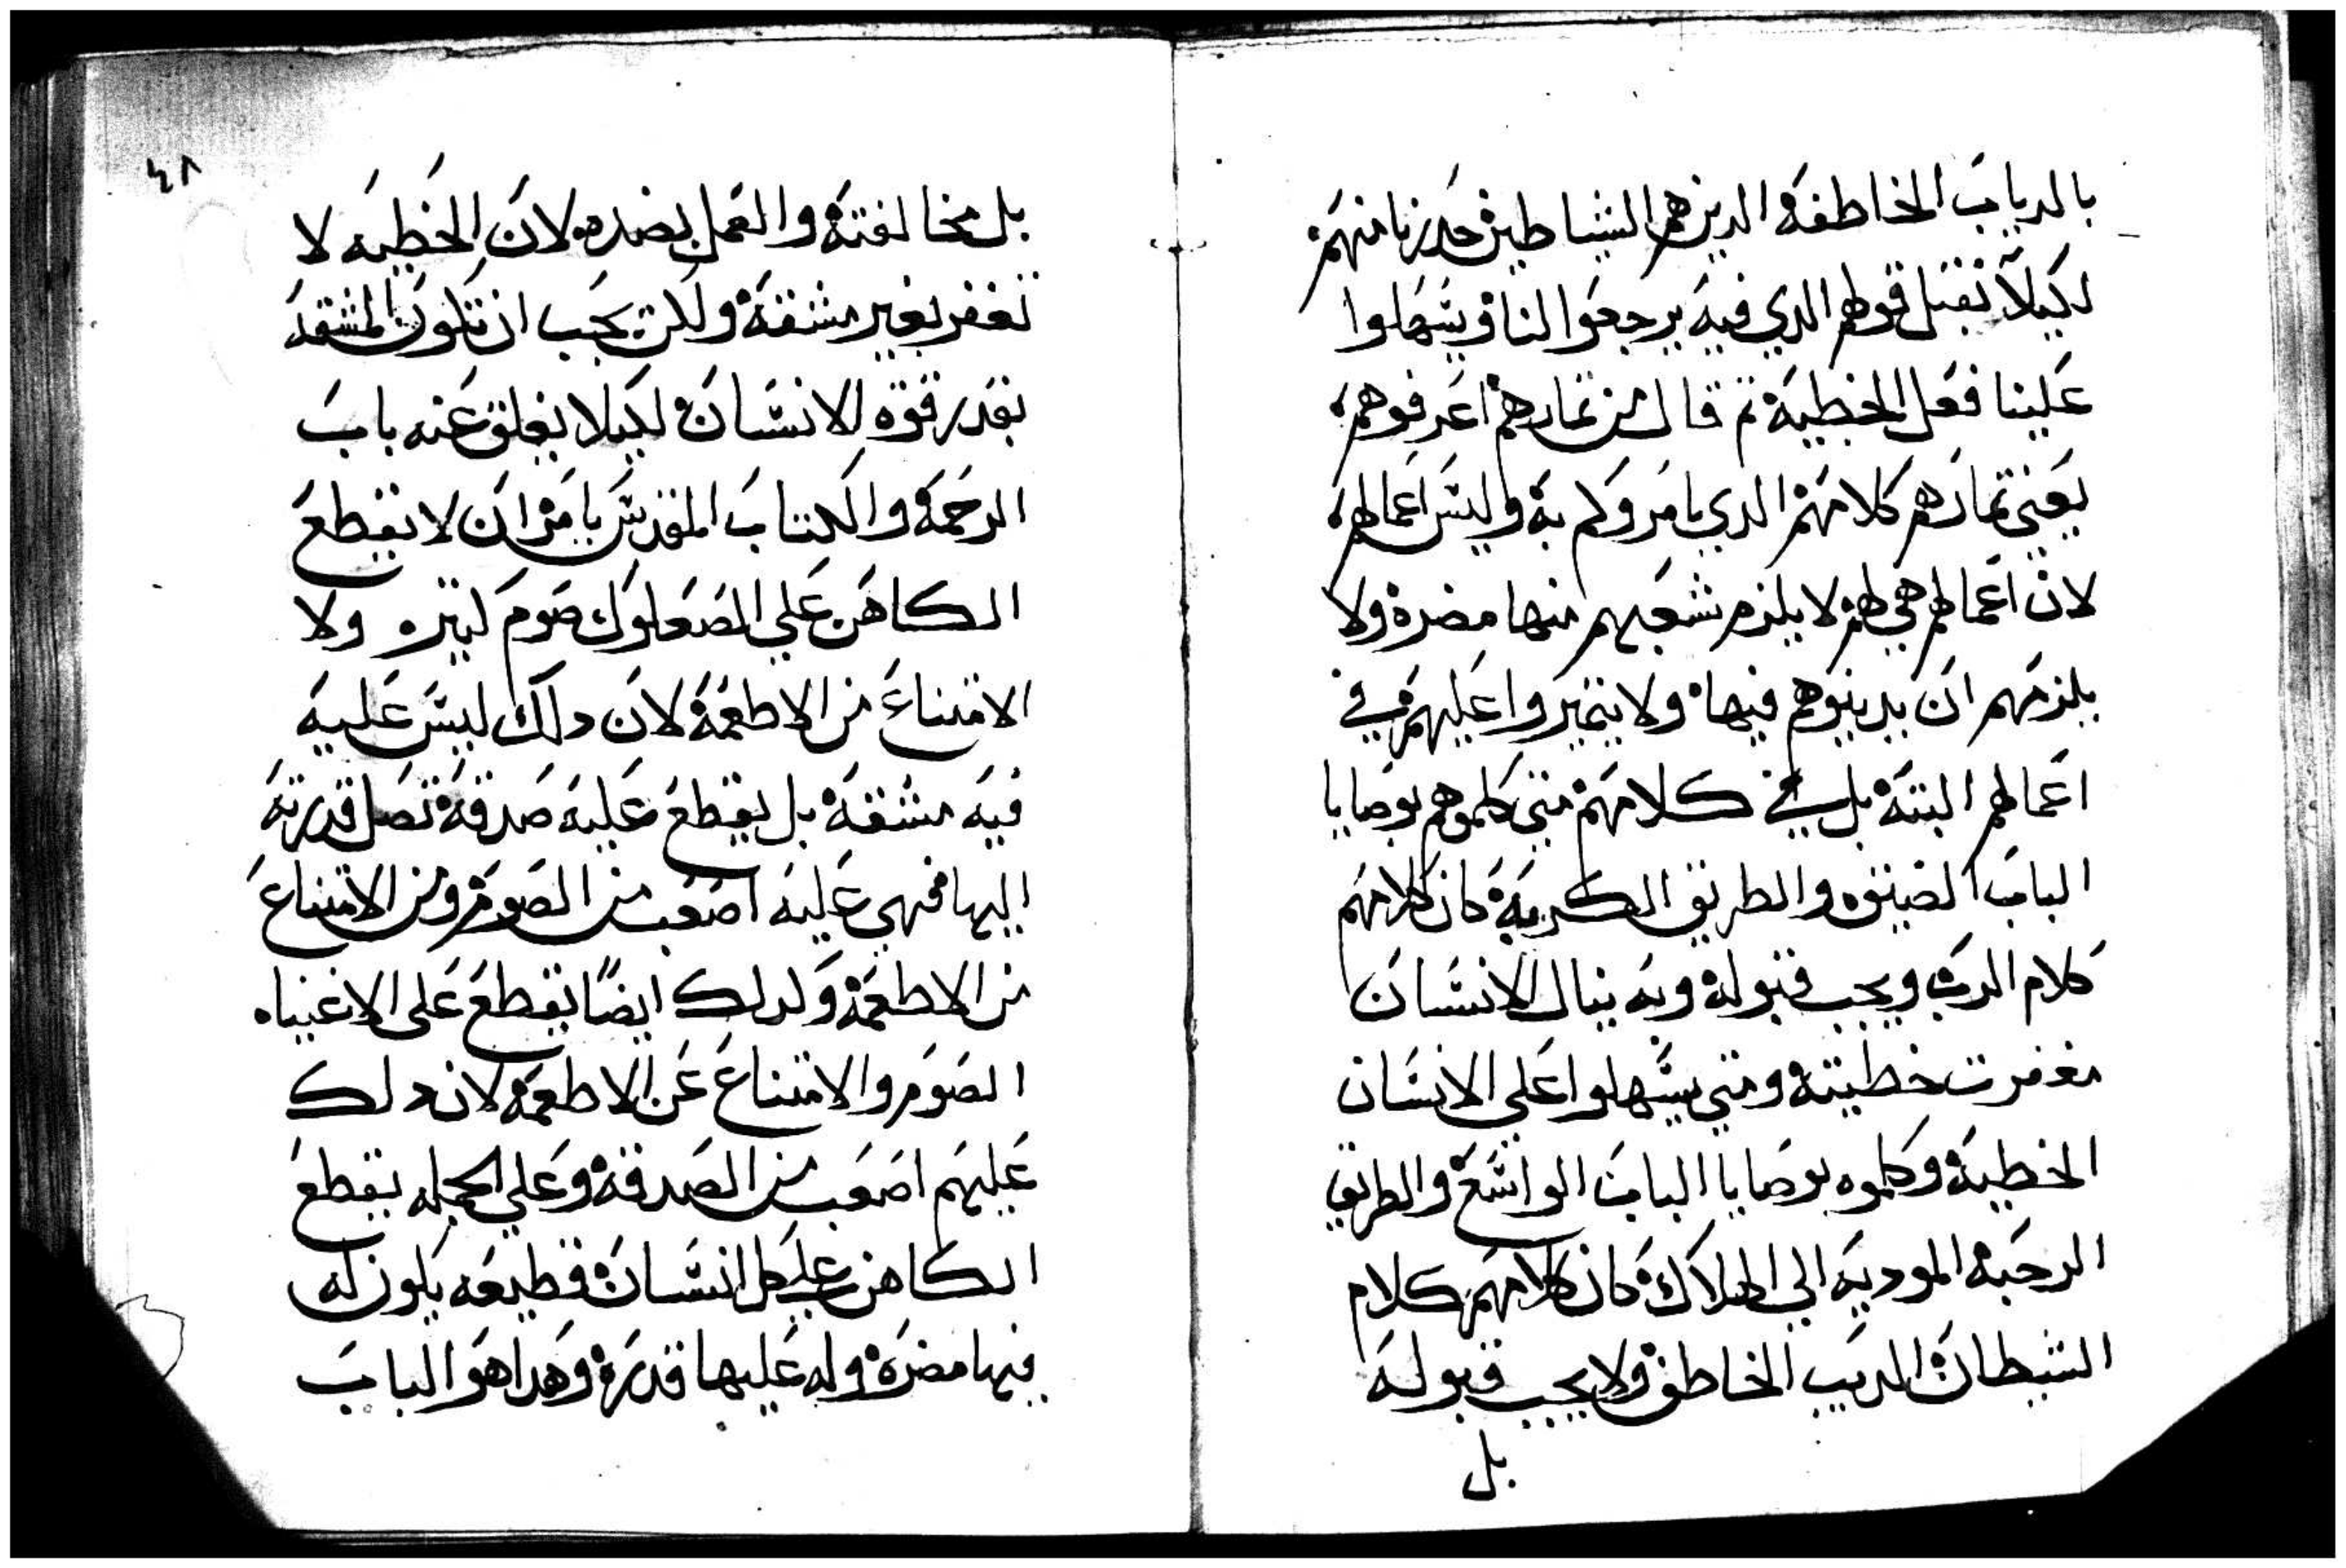 بالدياب الخاطفه الدين هم الشياطين حدرنا منهم
لكيلا نقبل قولهم الدي فيه يرجعوا لنا ويسهلوا
علينا فعل الخطية تم قال من تمارهم اعرفوهم
يعني تمارهم كلامهم الدي يامروكم به وليس اعمالهم
لان اعمالهم هي لهم لا يلزم شعبهم منها مضرة ولا
يلزمهم ان يدينوهم فيها ولا يتميزوا عليهم في
اعمالهم البتة بل في كلامهم متي كلموهم بوصايا
الباب الضيقه والطريق الكربة كان كلامهم
كلام الرب ويجب قبوله وبه ينال الانسان
مغفرت خطيته ومتي يسهلوا علي الانسان
الخطية وكلموه بوصايا الباب الواسع والطريق
الرحبة الموديه الي الهلاك كان كلامهم كلام
الشيطان الديب الخاطف ولا يجب قبوله
بل
٤٨
بل مخالفته والعمل بضده لان الخطيه لا
تغفر بغير مشقة ولكن يجب ان تكون المشقه
بقدر قوة الانسان لكيلا يغلق عنه باب
الرحمة والكتاب المقدس يامر ان لا يقطع
الكاهن علي الصعلوك صوم كتير ولا
الامتناع من الاطعمة لان دلك ليس عليه
فيه مشقة بل يقطع عليه صدقة تصل قدرته
اليها فهي عليه اصعب من الصوم ومن الامتناع
من الاطعمة ولدلك ايضًا يقطع على الاغنياء
الصوم والامتناع عن الاطعمة لان دلك
عليهم اصعب من الصدقة وعلي الجمله يقطع
الكاهن علي كل انسان قطيعه يكون له
فيها مضرة وله عليها قدرة وهدا هو الباب